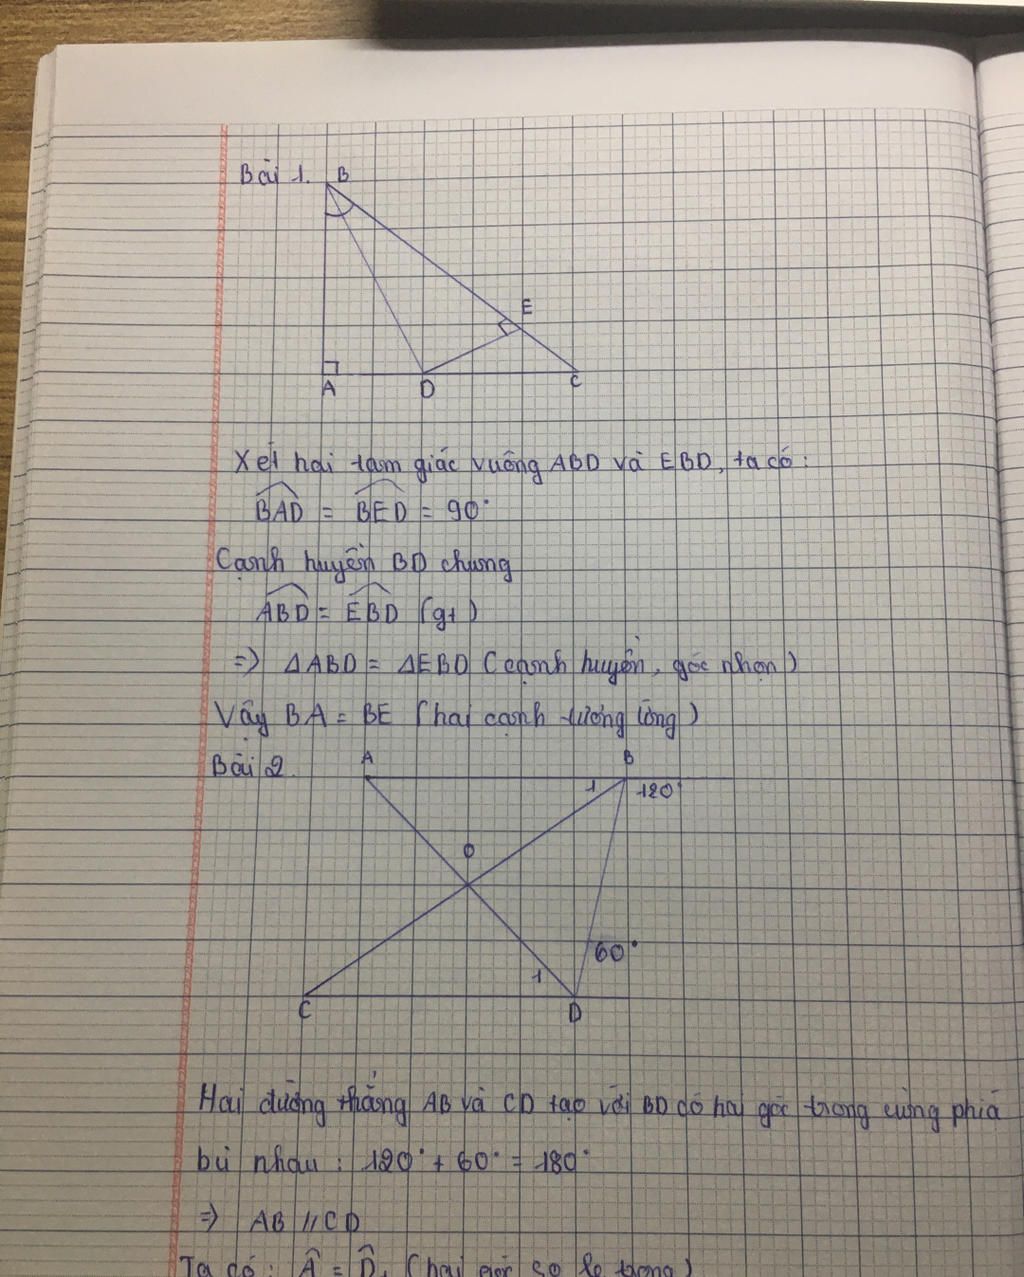 Bài 1. B
E
A D C
Xét hai tam giác vuông ABD và EBD, ta có:
BAD = BED = 90°
Cạnh huyền BD chung
ABD = EBD (gt)
=> ΔABD = ΔEBD (cạnh huyền, góc nhọn)
Vậy BA = BE (hai cạnh tương ứng)
Bài 2. A B
1 120°
O
60°
1
C D
Hai đường thẳng AB và CD tạo với BD có hai góc trong cùng phía
bù nhau: 120° + 60° = 180°
=> AB // CD
Ta có: Â = D̂₁ (hai góc so le trong)